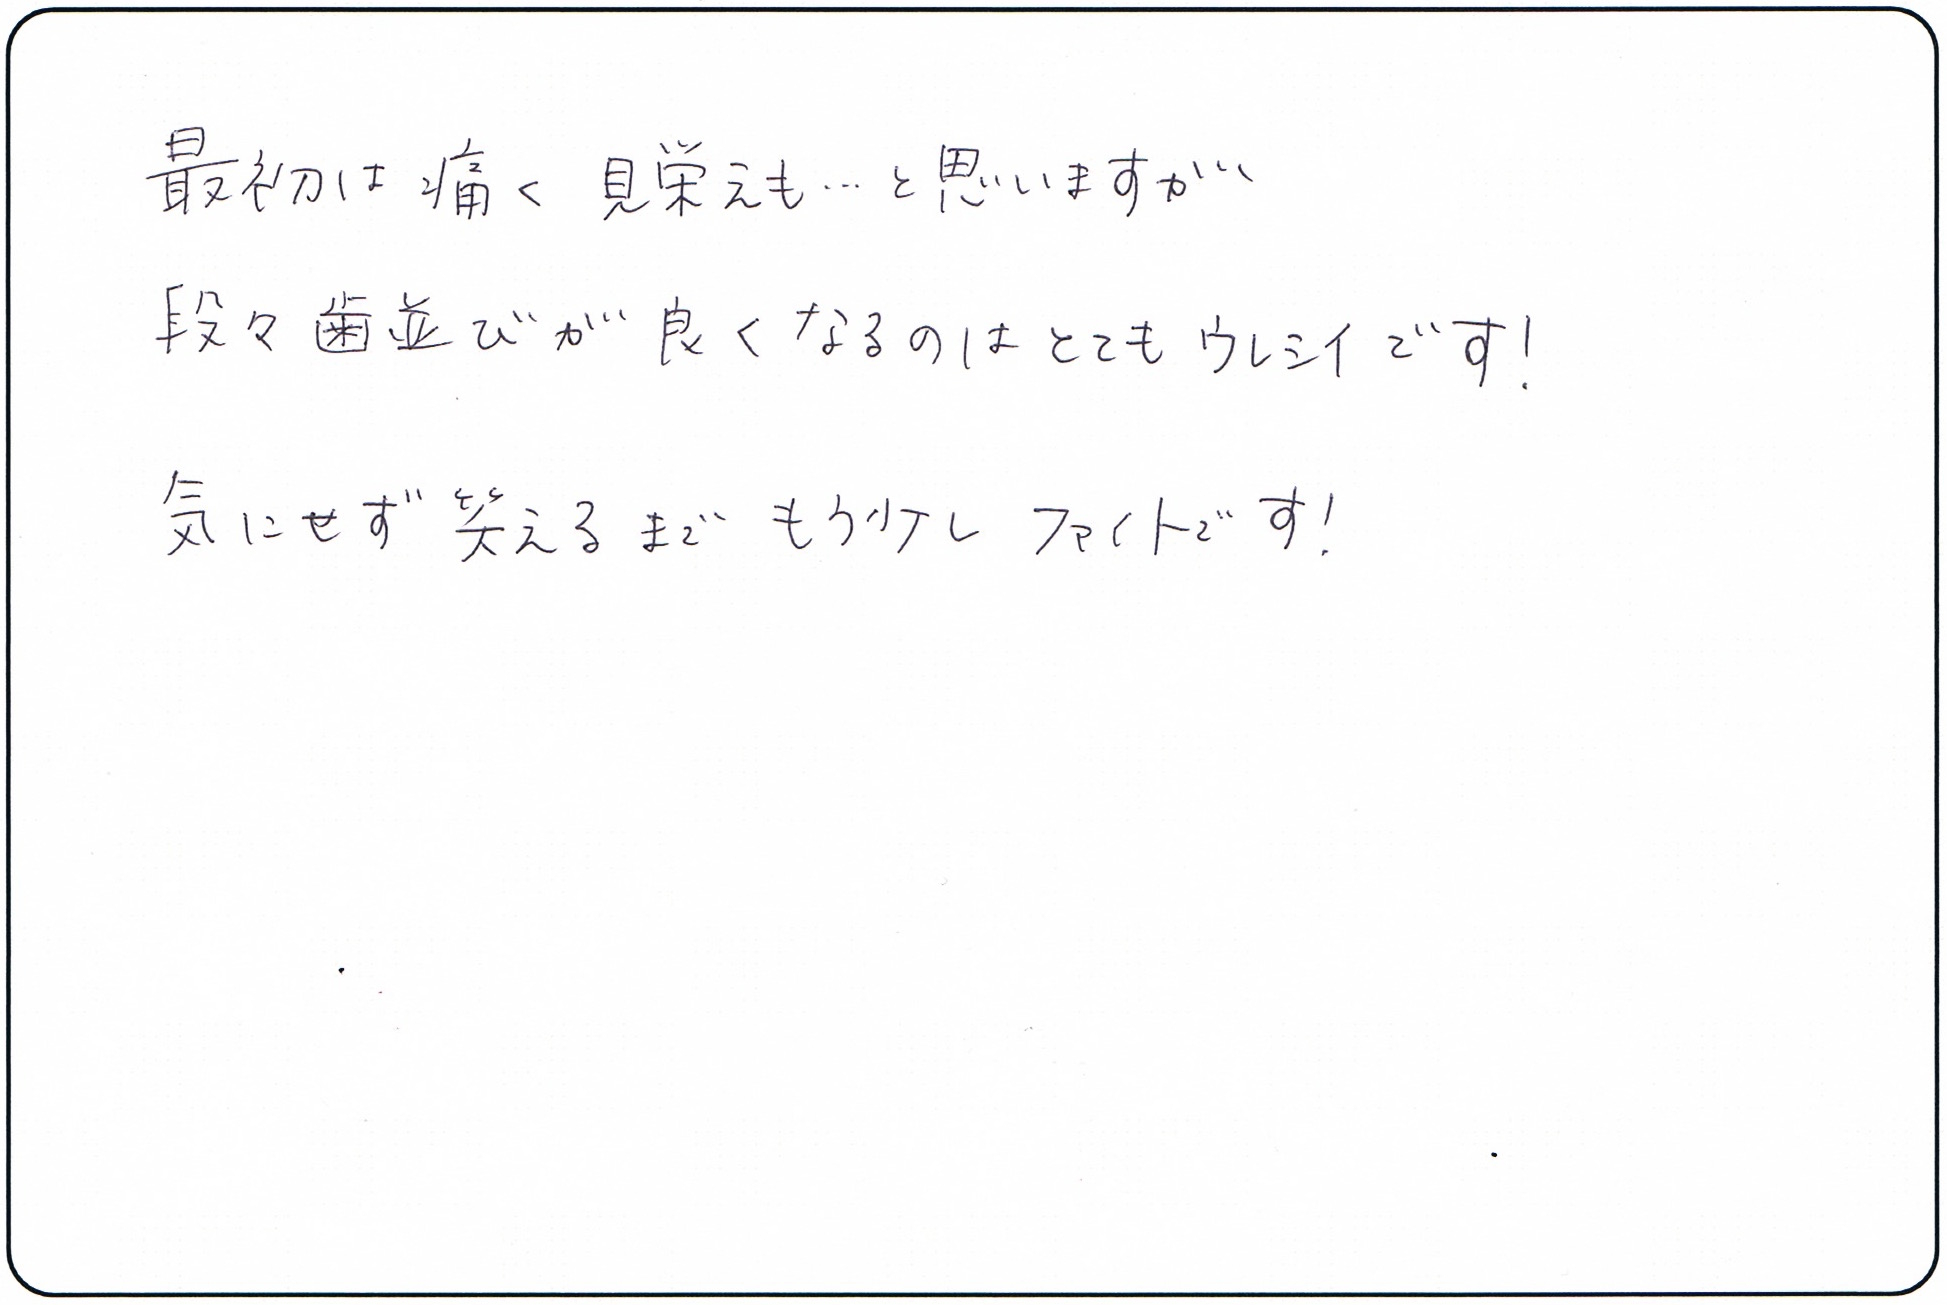 最初は痛く 見栄えも…と思いますが、
段々歯並びが良くなるのはとてもウレシイです!
気にせず笑えるまで もう少し ファイトです!